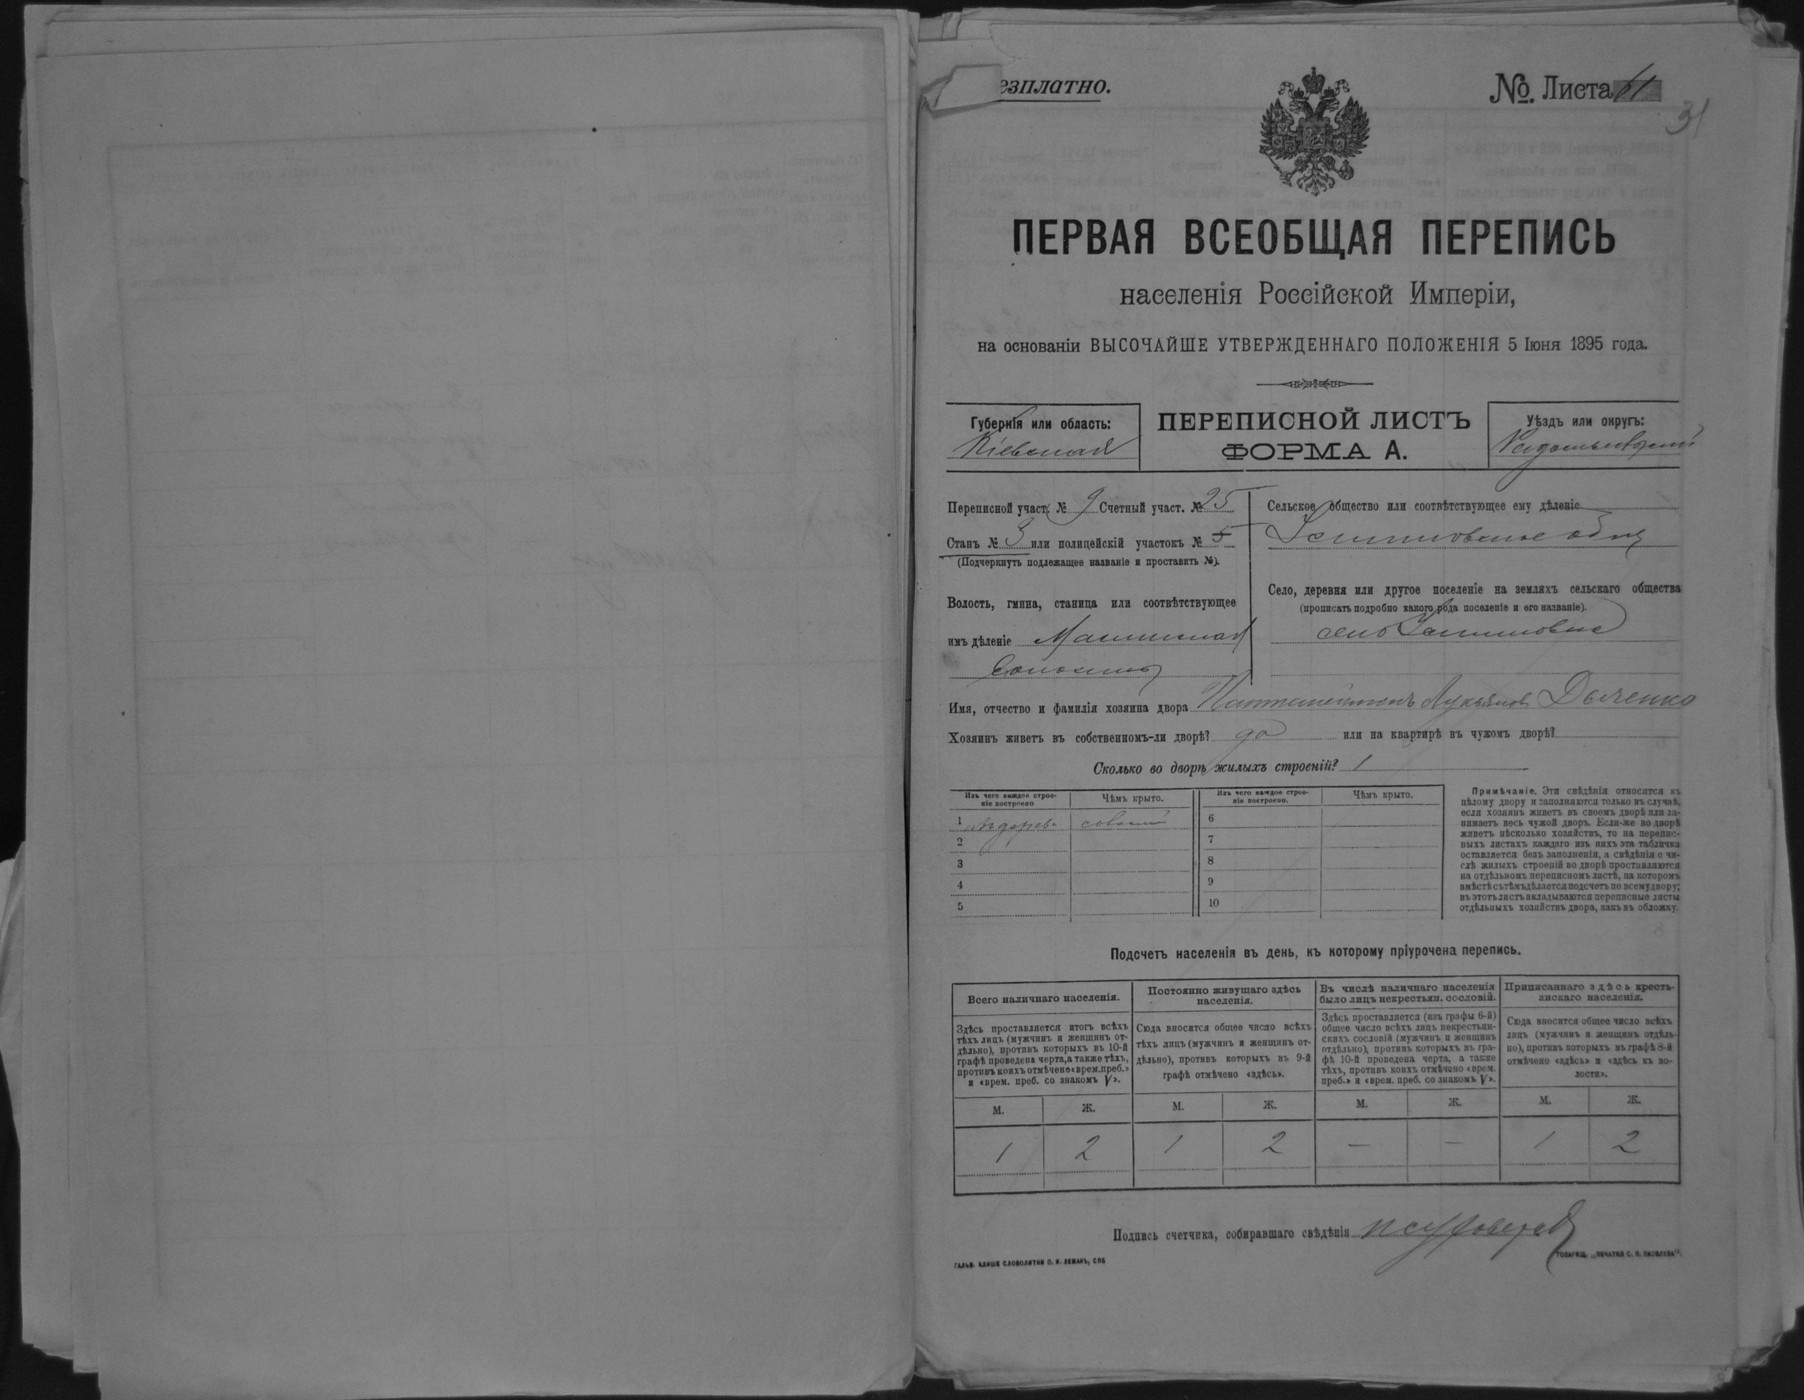 езплатно.
№ Листа 61
31
ПЕРВАЯ ВСЕОБЩАЯ ПЕРЕПИСЬ
населенія Россійской Имперіи,
на основаніи ВЫСОЧАЙШЕ УТВЕРЖДЕННАГО ПОЛОЖЕНІЯ 5 Іюня 1895 года.
Губернія или область:
Кіевская
ПЕРЕПИСНОЙ ЛИСТЪ
ФОРМА А.
Уѣздъ или округъ:
Радомысльскій
Переписной участ. № 9 Счетный участ. № 25
Станъ № 3 или полицейскій участокъ №
(Подчеркнуть подлежащее названіе и проставить №).
Волость, гмина, станица или соотвѣтствующее
имъ дѣленіе Малинская
волость
Сельское общество или соотвѣтствующее ему дѣленіе
Село, деревня или другое поселеніе на земляхъ сельскаго общества
(прописать подробно какого рода поселеніе и его названіе).
село
Имя, отчество и фамилія хозяина двора Пантелеймонъ Лукьяновъ Дяченко
Хозяинъ живетъ въ собственномъ-ли дворѣ? да или на квартирѣ въ чужомъ дворѣ?
Сколько во дворѣ жилыхъ строеній? 1
Изъ чего каждое строеніе построено
Чѣмъ крыто.
Изъ чего каждое строеніе построено.
Чѣмъ крыто.
1 изъ дерев.
6
2
7
3
8
4
9
5
10
Примѣчаніе. Эти свѣдѣнія относятся къ
цѣлому двору и заполняются только въ случаѣ,
если хозяинъ живетъ въ своемъ дворѣ или за-
нимаетъ весь чужой дворъ. Если-же во дворѣ
живетъ нѣсколько хозяйствъ, то на перепис-
ныхъ листахъ каждаго изъ нихъ эта табличка
оставляется безъ заполненія, а свѣдѣнія о чи-
слѣ жилыхъ строеній во дворѣ проставляются
на отдѣльномъ переписномъ листѣ, на которомъ
вмѣстѣ съ тѣмъ дѣлается подсчетъ по всему двору;
въ этотъ листъ вкладываются переписные листы
отдѣльныхъ хозяйствъ двора, какъ въ обложку.
Подсчетъ населенія въ день, къ которому пріурочена перепись.
Всего наличнаго населенія.
Здѣсь проставляется итогъ всѣхъ
тѣхъ лицъ (мужчинъ и женщинъ от-
дѣльно), противъ которыхъ въ 10-й
графѣ проведена черта, а также тѣхъ,
противъ коихъ отмѣчено «врем. преб.»
и «врем. преб. со знакомъ V».
Постоянно живущаго здѣсь
населенія.
Сюда вносится общее число всѣхъ
тѣхъ лицъ (мужчинъ и женщинъ от-
дѣльно), противъ которыхъ въ 9-й
графѣ отмѣчено «здѣсь».
Въ числѣ наличнаго населенія
было лицъ некрестьян. сословій.
Здѣсь проставляется (изъ графы 6-й)
общее число всѣхъ лицъ некрестьян-
скихъ сословій (мужчинъ и женщинъ
отдѣльно), противъ которыхъ въ гра-
фѣ 10-й проведена черта, а также
тѣхъ, противъ коихъ отмѣчено «врем.
преб.» и «врем. преб. со знакомъ V».
Приписаннаго здѣсь кресть-
янскаго населенія.
Сюда вносится общее число всѣхъ
лицъ (мужчинъ и женщинъ отдѣль-
но), противъ которыхъ въ графѣ 8-й
отмѣчено «здѣсь» и «здѣсь къ во-
лости».
М. Ж. М. Ж. М. Ж. М. Ж.
1 2 1 2 — — 1 2
Подпись счетчика, собиравшаго свѣдѣнія
ГАЛЬВ. КЛИШЕ СЛОВОЛИТНИ О. И. ЛЕМАНЪ, СПБ
ТОВАРИЩ. „ПЕЧАТНЯ С. П. ЯКОВЛЕВА“.